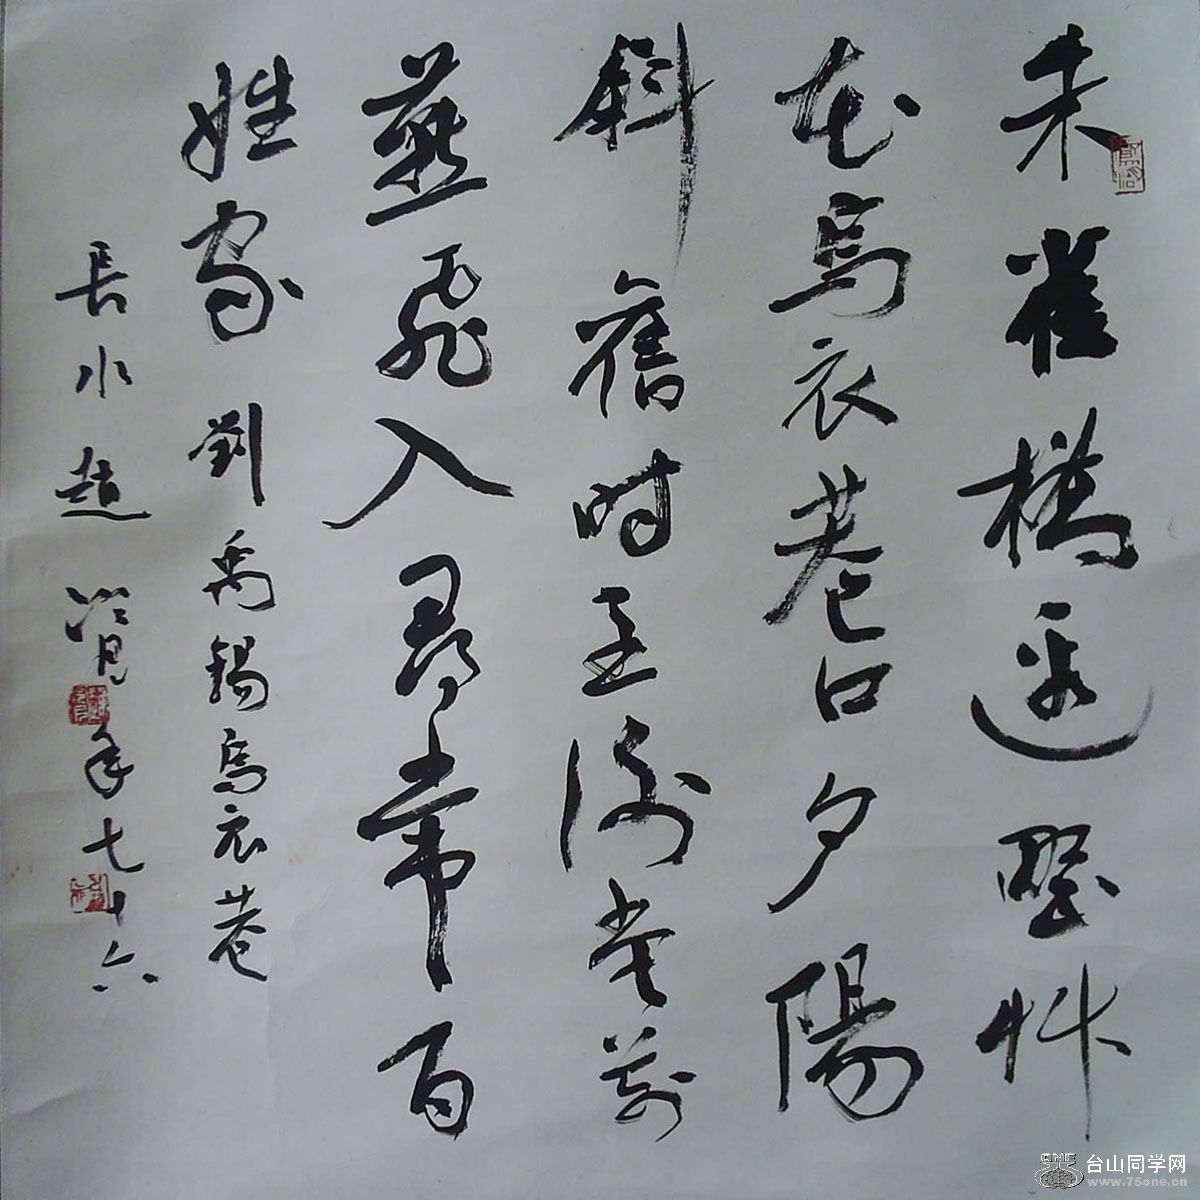 朱雀橋邊野艸
花烏衣巷口夕陽
斜舊时王謝堂前
燕飛入尋常百
姓家 劉禹錫烏衣巷
長水趙 年七十六
台山同学网
www.75one.cn